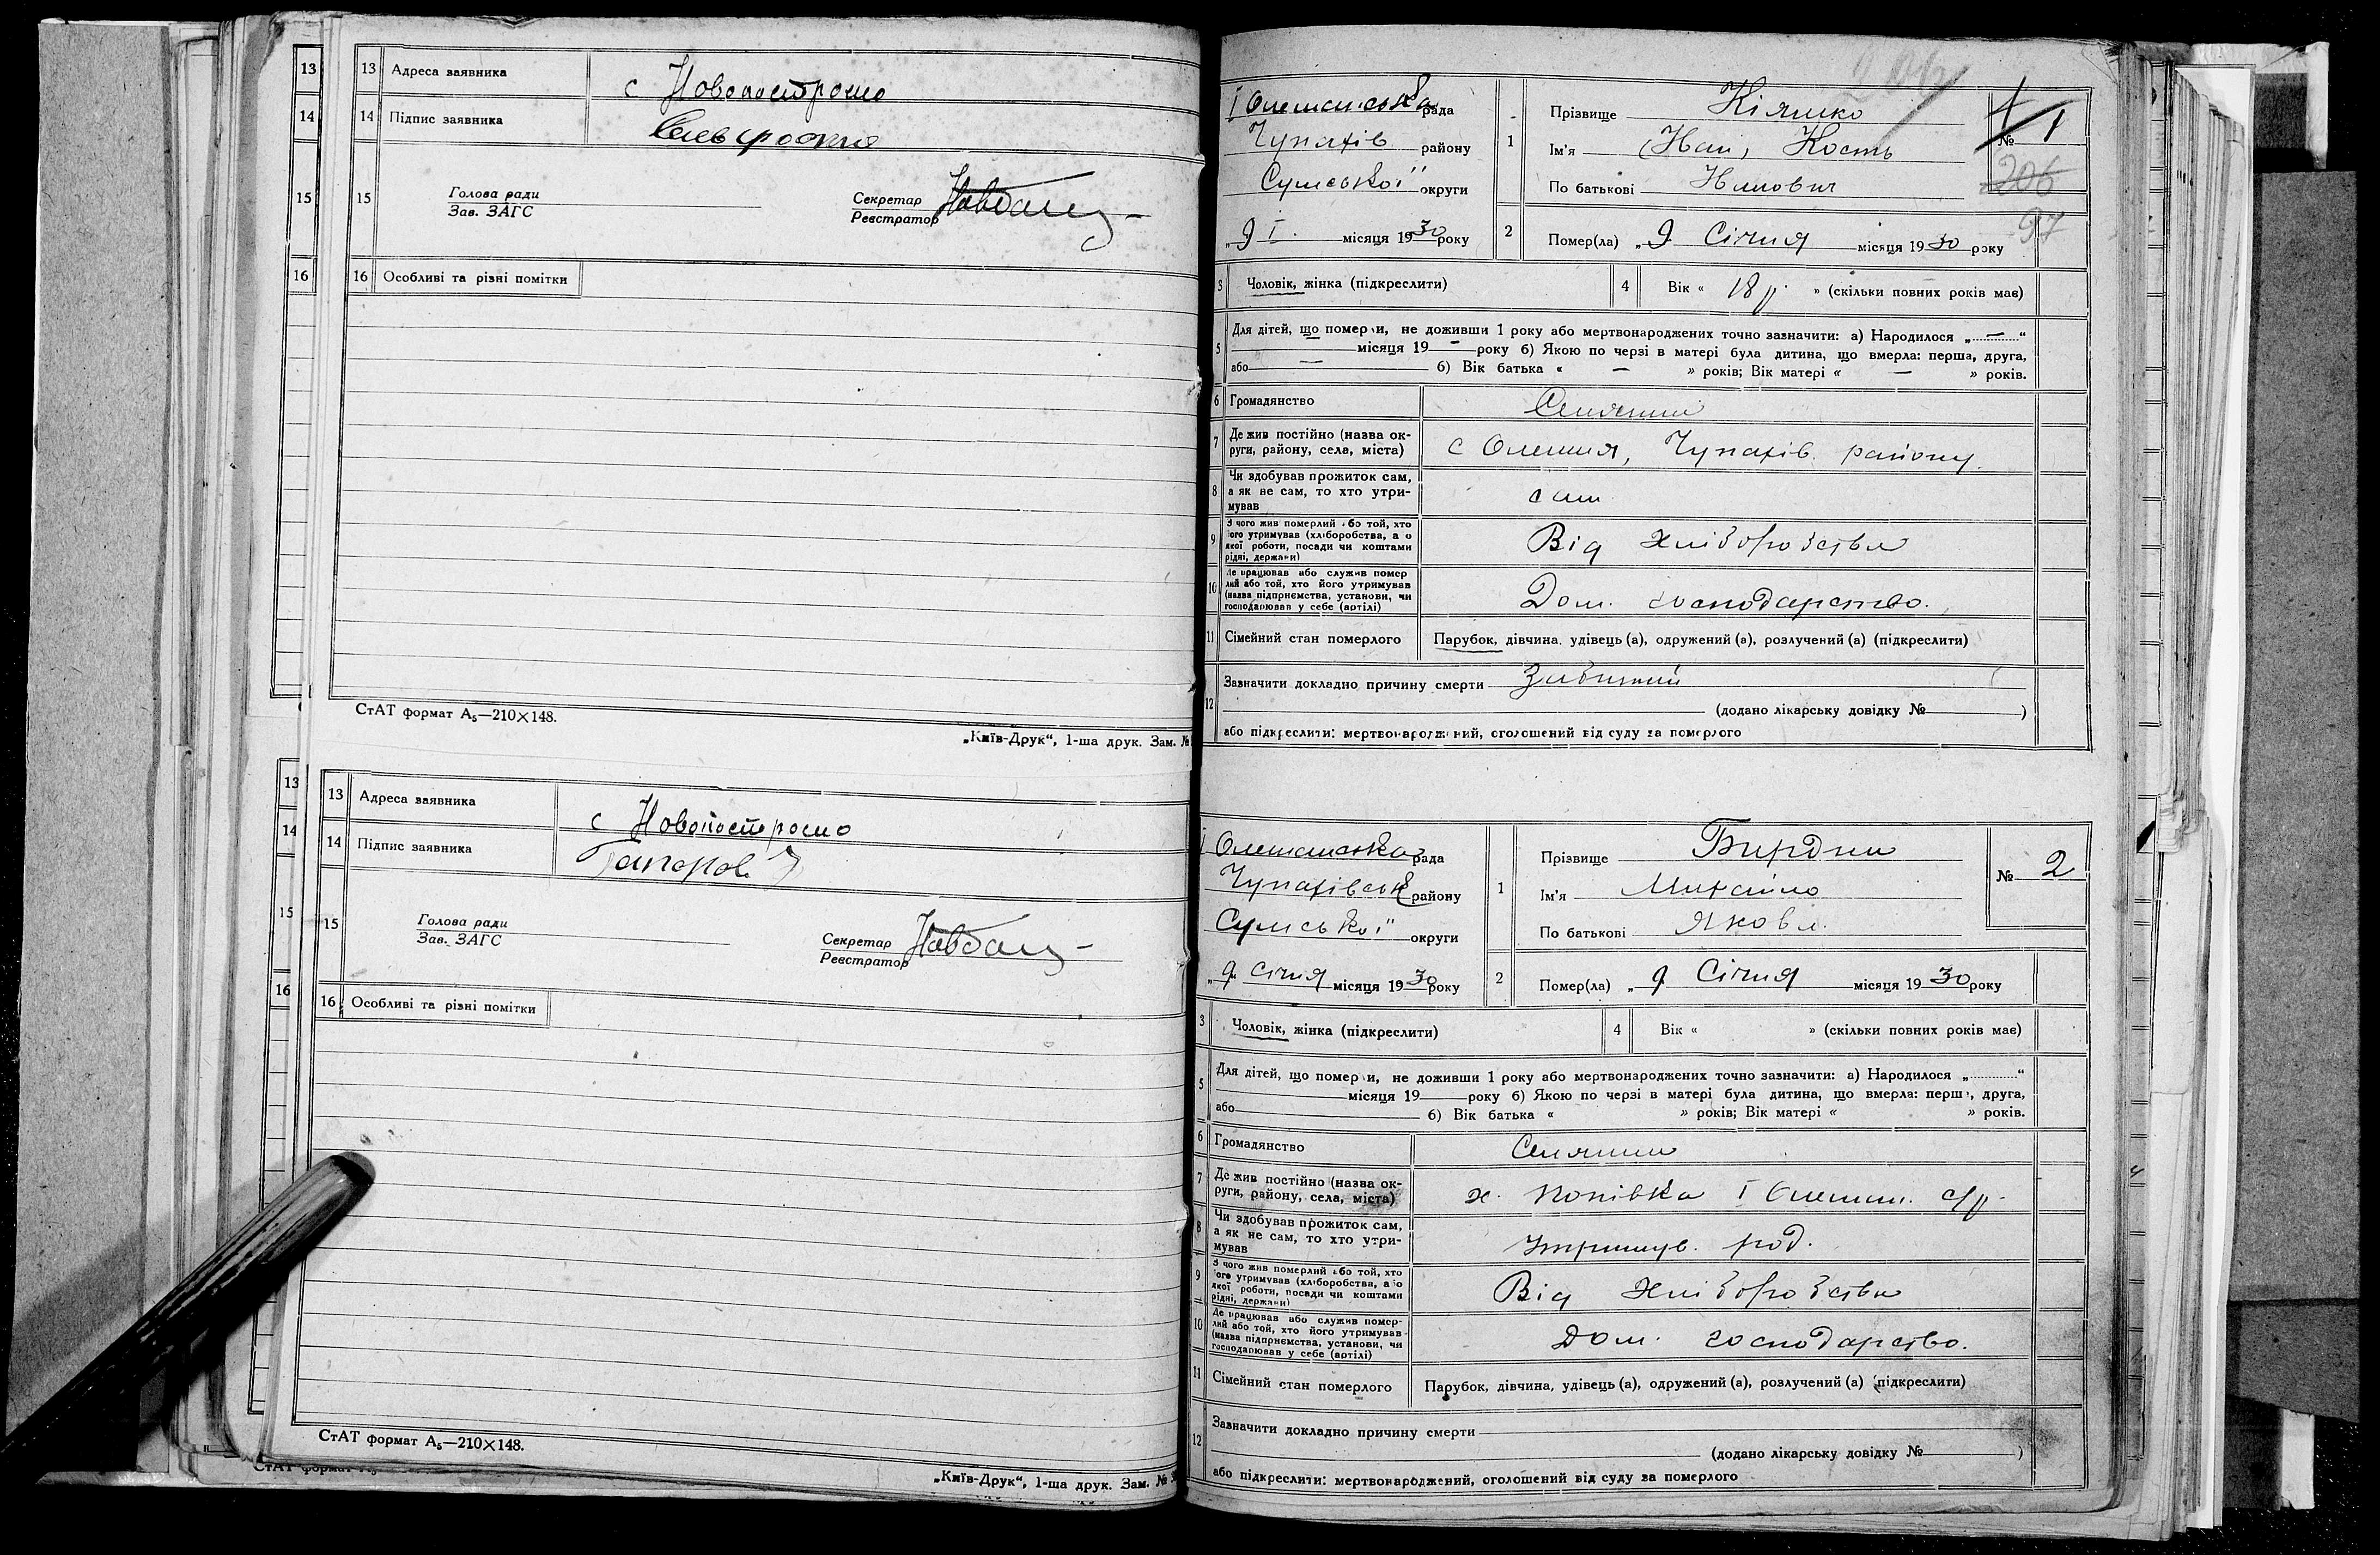 13 Адреса заявника с Новопостроено
14 Підпис заявника
15
Голова ради
Зав. ЗАГС
Секретар
Реєстратор
16 Особливі та різні помітки
СтАТ формат А₅—210×148.
„Київ-Друк“, 1-ша друк. Зам. №
13 Адреса заявника с Новопостроено
14 Підпис заявника
15
Голова ради
Зав. ЗАГС
Секретар
Реєстратор
16 Особливі та різні помітки
СтАТ формат А₅—210×148.
„Київ-Друк“, 1-ша друк. Зам. №
206
І Олешанська рада
Чупахів району
Сумської округи
„9 І. місяця 1930 року
1 Прізвище Кіяшко
Ім'я Кость
По батькові
№ 1
206
97
2 Помер(ла) „9 Січня місяця 1930 року
3 Чоловік, жінка (підкреслити)
4 Вік « 18 р. » (скільки повних років має)
5 Для дітей, що померли, не доживши 1 року або мертвонароджених точно зазначити: а) Народилося „ — “
— місяця 19 — року б) Якою по черзі в матері була дитина, що вмерла: перша, друга,
або — б) Вік батька « — » років; Вік матері « — » років.
6 Громадянство Селянин
7 Де жив постійно (назва ок-
руги, району, села, міста) с Олешня, Чупахів. району.
8 Чи здобував прожиток сам,
а як не сам, то хто утри-
мував
сам
9 З чого жив померлий або той, хто
його утримував (хліборобства, або
якої роботи, посади чи коштами
рідні, держави)
Від хліборобства
10 Де працював або служив помер
лий або той, хто його утримував
(назва підприємства, установи, чи
господарював у себе (артілі)
Дом. господарство.
11 Сімейний стан померлого Парубок, дівчина, удівець (а), одружений (а), розлучений (а) (підкреслити)
12 Зазначити докладно причину смерти Забитий
(додано лікарську довідку № )
або підкреслити: мертвонароджений, оголошений від суду за померлого
І Олешанська рада
Чупахівськ району
Сумської округи
„9 січня місяця 1930 року
1 Прізвище Бирдин
Ім'я Михайло
По батькові Яковл.
№ 2
2 Помер(ла) „9 Січня місяця 1930 року
3 Чоловік, жінка (підкреслити)
4 Вік « » (скільки повних років має)
5 Для дітей, що померли, не доживши 1 року або мертвонароджених точно зазначити: а) Народилося „ “
місяця 19 року б) Якою по черзі в матері була дитина, що вмерла: перша, друга,
або б) Вік батька « » років; Вік матері « » років.
6 Громадянство Селянин
7 Де жив постійно (назва ок-
руги, району, села, міста) х. Попівка І Олешан. с/р.
8 Чи здобував прожиток сам,
а як не сам, то хто утри-
мував
Утримув. род.
9 З чого жив померлий або той, хто
його утримував (хліборобства, або
якої роботи, посади чи коштами
рідні, держави)
Від хліборобства
10 Де працював або служив помер-
лий або той, хто його утримував
(назва підприємства, установи, чи
господарював у себе (артілі)
Дом. господарство.
11 Сімейний стан померлого Парубок, дівчина, удівець (а), одружений (а), розлучений (а) (підкреслити)
12 Зазначити докладно причину смерти
(додано лікарську довідку № )
або підкреслити: мертвонароджений, оголошений від суду за померлого